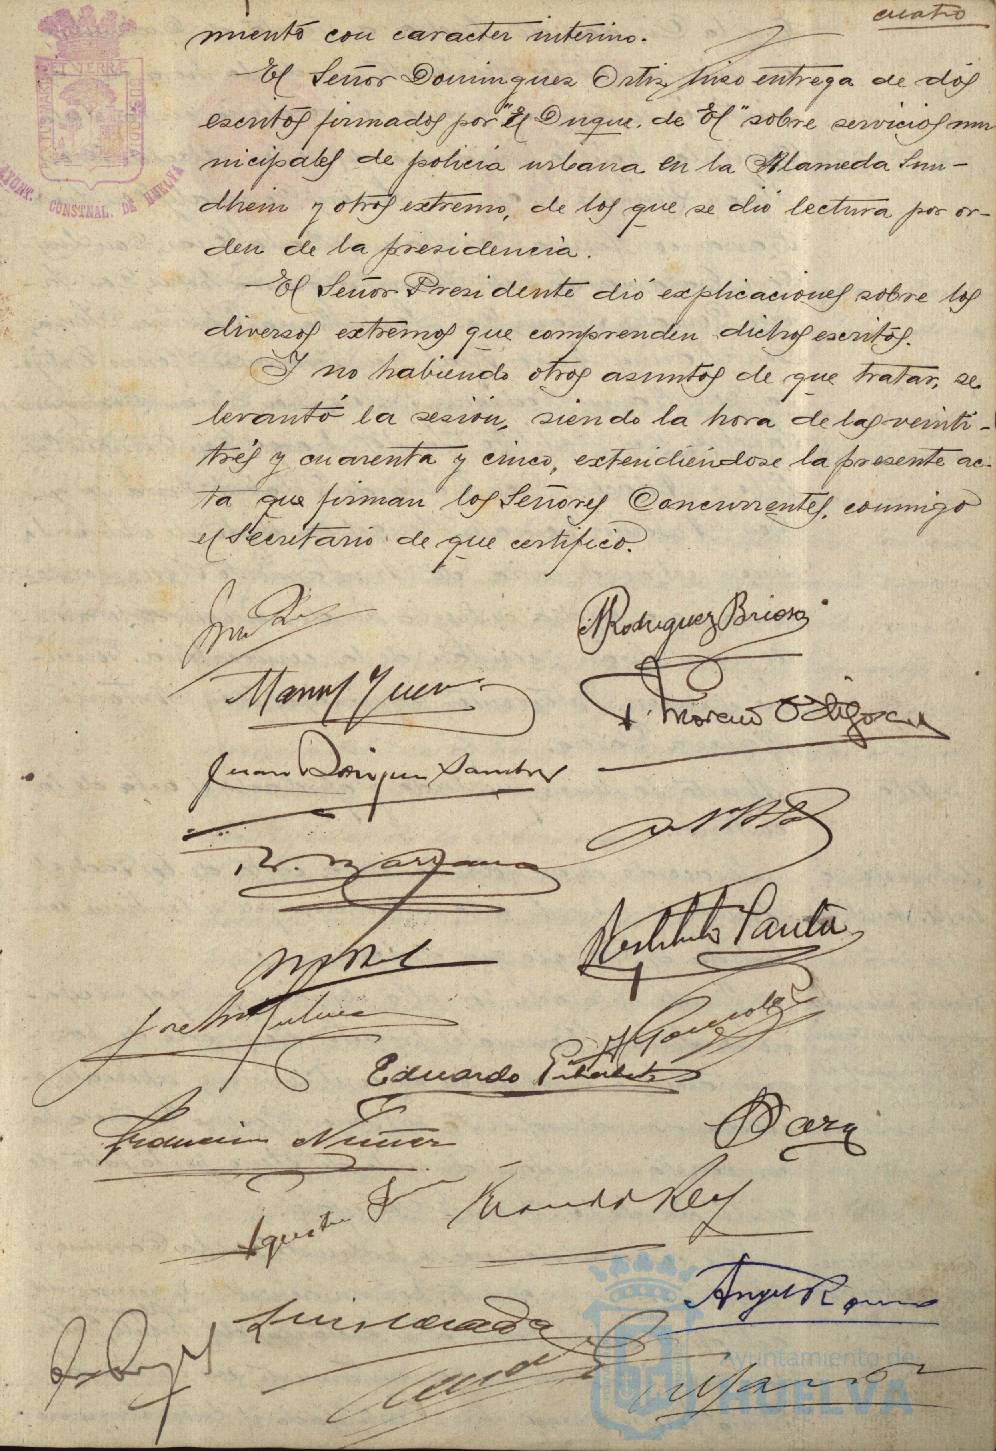 cuatro
miento con caracter interino.
El Señor Dominguez Ortiz hiso entrega de dos
escritos firmados por "El Duque de El" sobre servicios mu-
nicipales de policia urbana en la Alameda Sun-
dhein y otros extremo, de los que se dió lectura por or-
den de la presidencia.
El Señor Presidente dió explicaciones sobre los
diversos extremos que comprenden dichos escritos.
Y no habiendo otros asuntos de que tratar, se
levantó la sesión, siendo la hora de las veinti-
trés y cuarenta y cinco, extendiéndose la presente ac-
ta que firman los Señores Concurrentes, conmigo
el Secretario de que certifico.
AYUNT. CONSTNAL. DE HUELVA
Rodriguez Brioso
Manuel
F. Moreno
Juan
Restituto
José
Gonzalez
Eduardo
Francisco Nuñez
Agustin
Rey
Angel
Luis
Ayuntamiento de
HUELVA